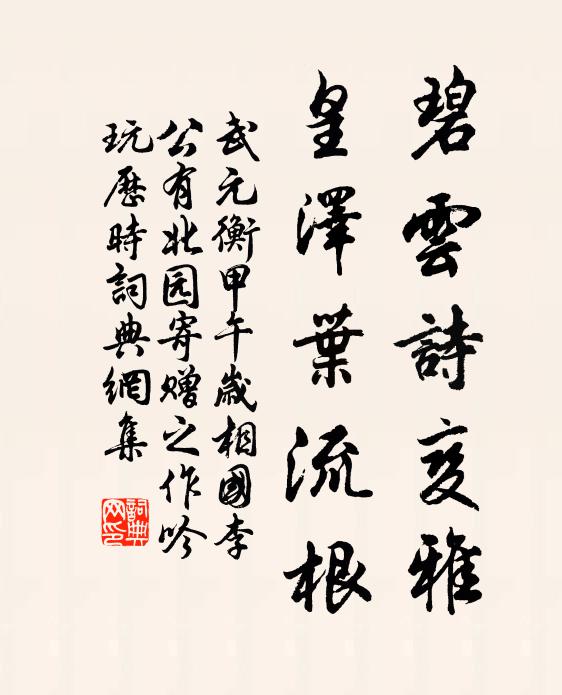 碧雲詩变雅
皇澤葉流根
武元衡甲午歲相國李
公有北园寄赠之作吟
玩歷時詞典網集
詞典网印